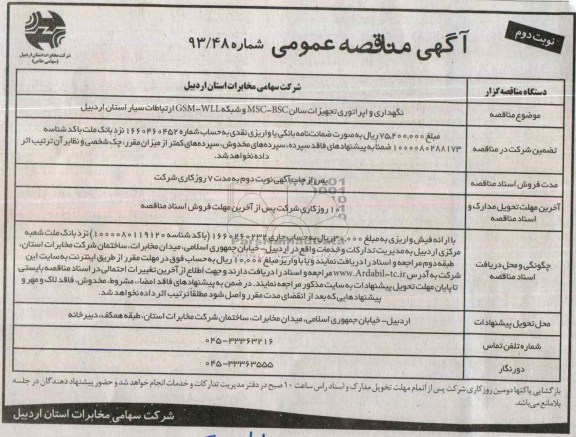 نوبت دوم
آگهی مناقصه عمومی شماره ۹۳/۴۸
شرکت مخابرات استان اردبیل
(سهامی خاص)
دستگاه مناقصه گزار
شرکت سهامی مخابرات استان اردبیل
موضوع مناقصه
نگهداری و اپراتوری تجهیزات سالن MSC-BSC و شبکه GSM-WLL ارتباطات سیار استان اردبیل
تضمین شرکت در مناقصه
مبلغ ۷۵,۲۰۰,۰۰۰ ریال به صورت ضمانت نامه بانکی یا واریزی نقدی به حساب شماره ۱۶۶۰۴۶۰۴۵۲ نزد بانک ملت با کد شناسه
۱۰۰۰۰۸۰۲۸۸۱۷۳ ضمناً به پیشنهادهای فاقد سپرده، سپرده های مخدوش، سپرده های کمتر از میزان مقرر، چک شخصی و نظایر آن ترتیب اثر
داده نخواهد شد.
مدت فروش اسناد مناقصه
پس از چاپ آگهی نوبت دوم به مدت ۷ روز کاری شرکت
آخرین مهلت تحویل مدارک و
اسناد مناقصه
۱۰ روز کاری شرکت پس از آخرین مهلت فروش اسناد مناقصه
چگونگی و محل دریافت
اسناد مناقصه
با ارائه فیش واریزی به مبلغ ۳۰,۰۰۰ ریال به حساب جاری ۱۶۶۰۲۶۰۲۳۲ (با کد شناسه ۱۰۰۰۰۸۰۱۱۹۱۲۰) نزد بانک ملت شعبه
مرکزی اردبیل به مدیریت تدارکات و خدمات واقع در اردبیل- خیابان جمهوری اسلامی، میدان مخابرات، ساختمان شرکت مخابرات استان،
طبقه دوم مراجعه و اسناد را دریافت نمایند و یا با واریز مبلغ ۱۰,۰۰۰ ریال به حساب فوق در مهلت مقرر از طریق اینترنت به سایت این
شرکت به آدرس www.Ardabil-tc.ir مراجعه و اسناد را دریافت دارند و جهت اطلاع از آخرین تغییرات احتمالی در اسناد مناقصه بایستی
تا پایان مهلت تحویل پیشنهادات به سایت مذکور مراجعه نمایند. در ضمن به پیشنهادهای فاقد امضاء، مشروط، مخدوش، فاقد لاک و مهر و
پیشنهادهایی که بعد از انقضای مدت مقرر واصل شود مطلقاً ترتیب اثر داده نخواهد شد.
محل تحویل پیشنهادات
اردبیل- خیابان جمهوری اسلامی، میدان مخابرات، ساختمان شرکت مخابرات استان، طبقه همکف، دبیرخانه
شماره تلفن تماس
۰۴۵-۳۳۳۶۳۲۱۶
دورنگار
۰۴۵-۳۳۳۶۳۵۵۵
بازگشایی پاکتها دومین روز کاری شرکت پس از اتمام مهلت تحویل مدارک و اسناد راس ساعت ۱۰ صبح در دفتر مدیریت تدارکات و خدمات انجام خواهد شد و حضور پیشنهاد دهندگان در جلسه
بلامانع می باشد.
شرکت سهامی مخابرات استان اردبیل